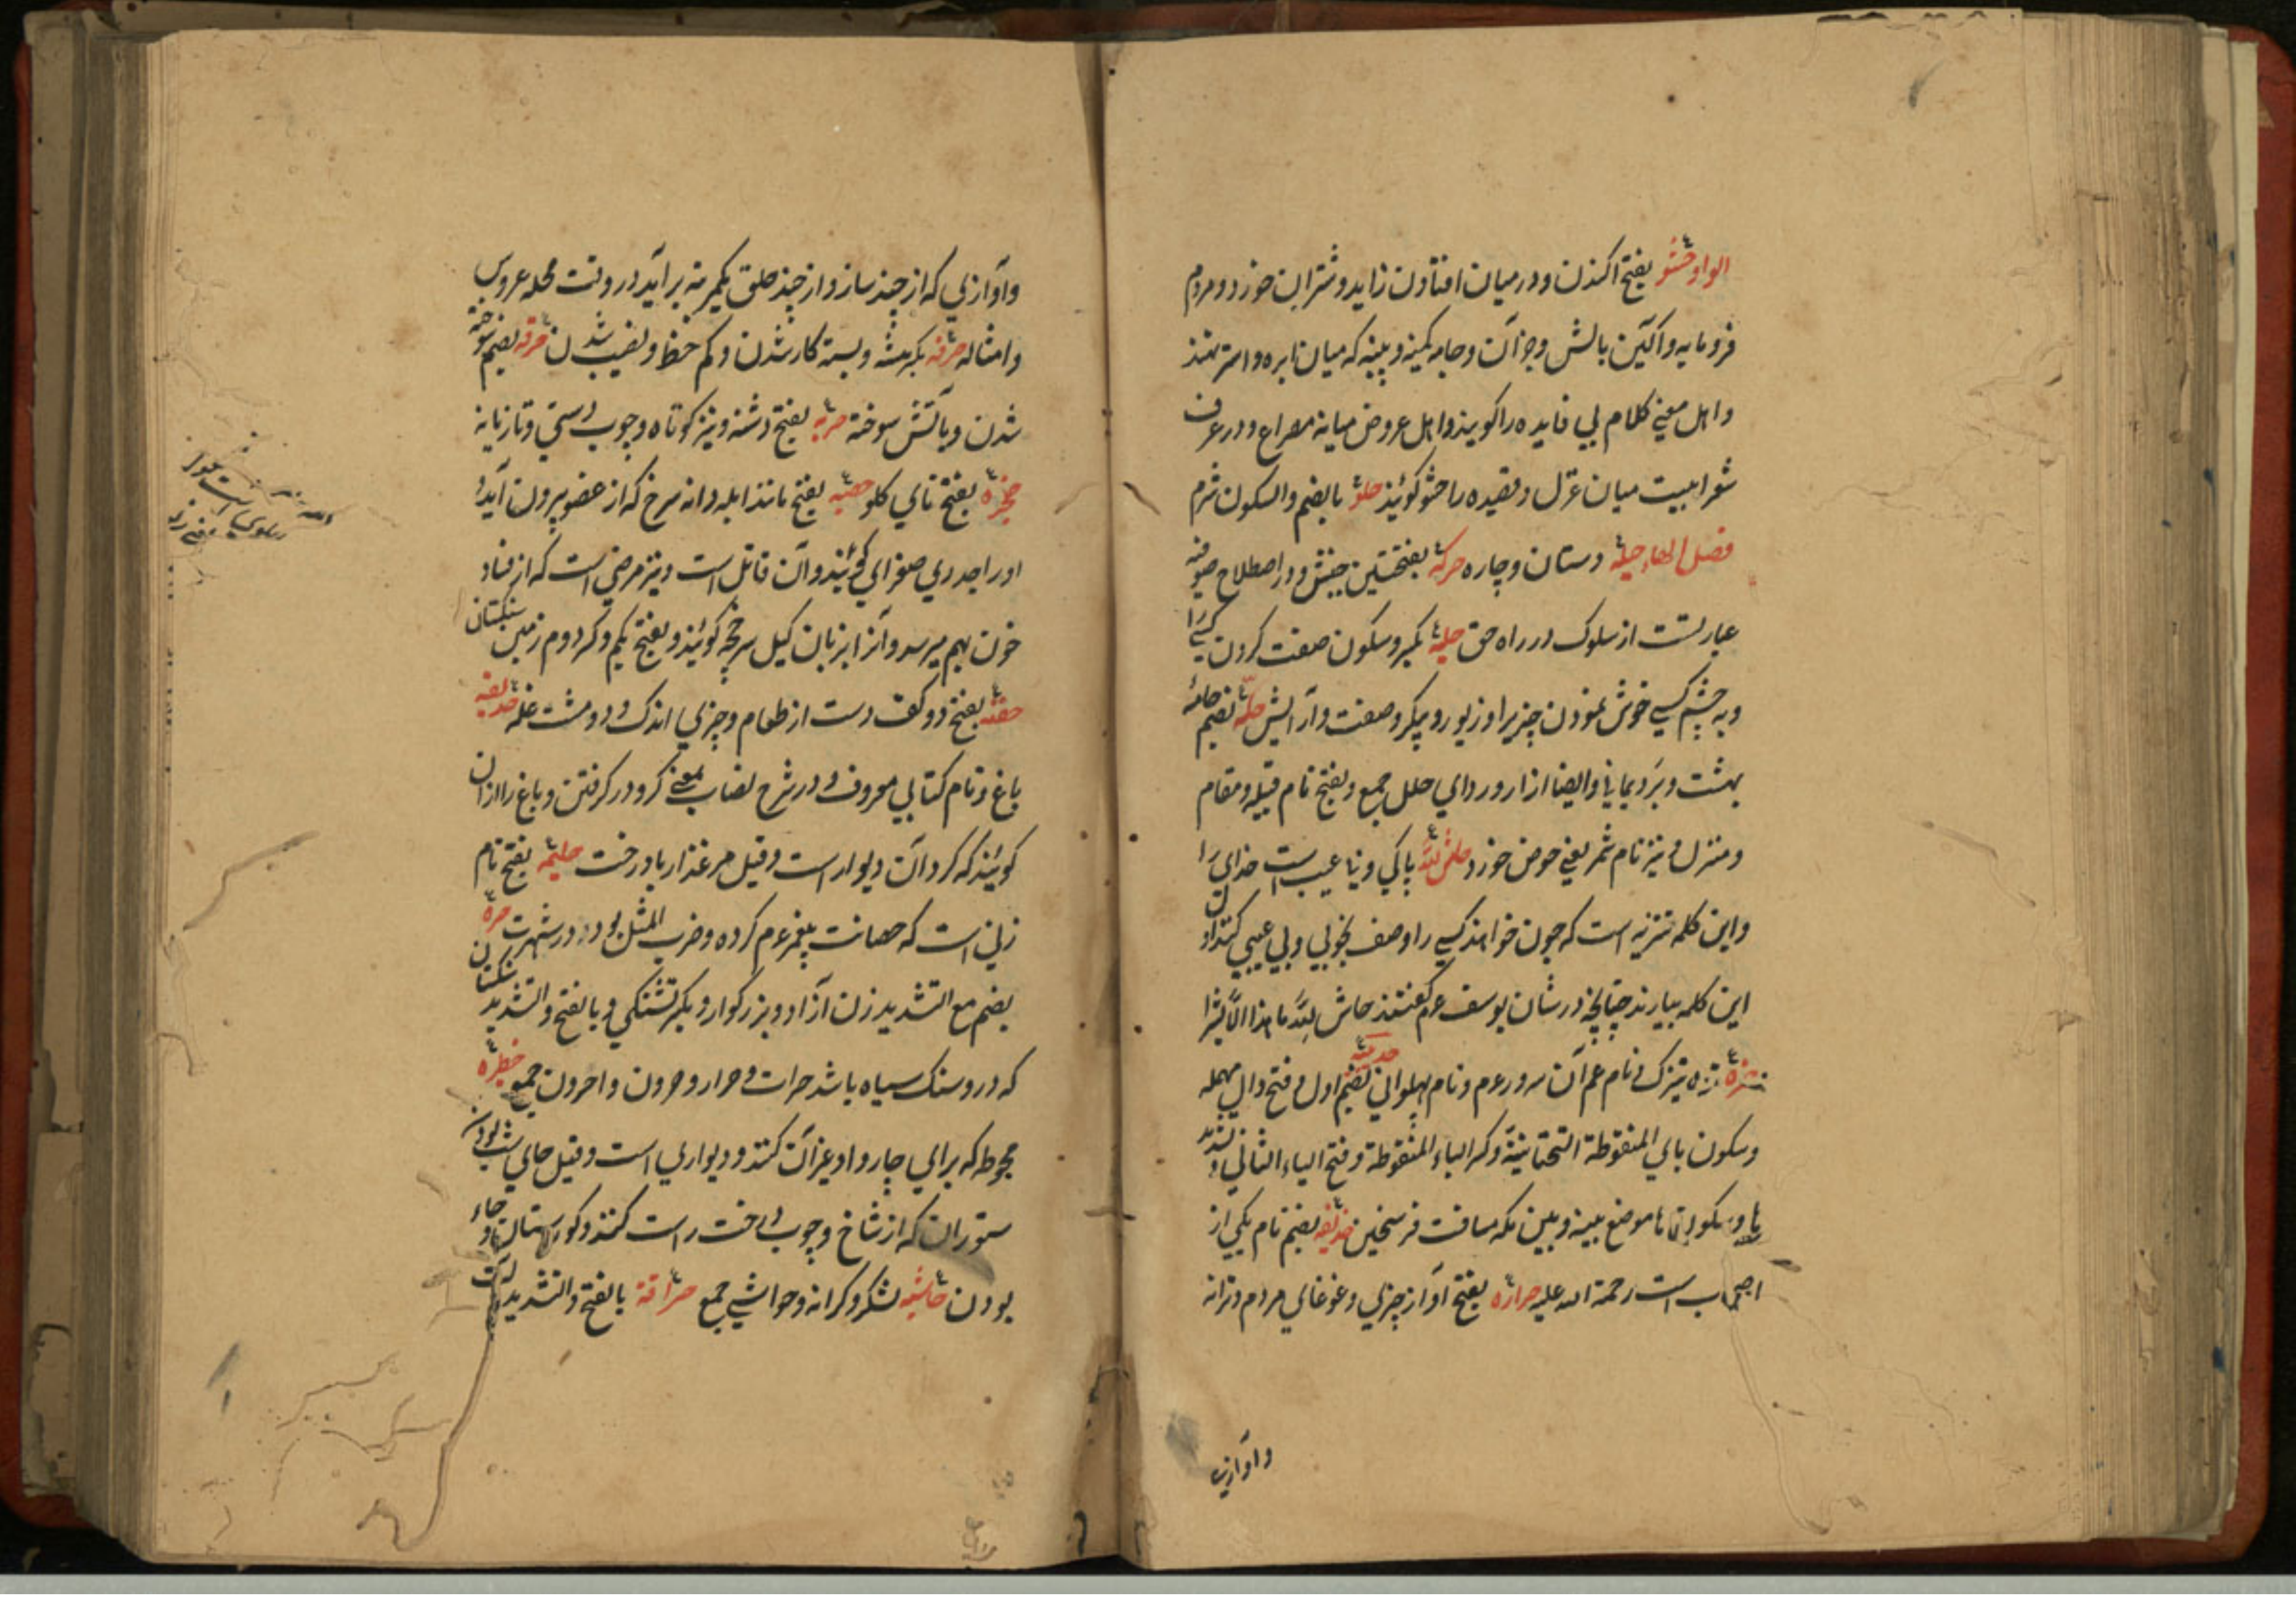 الواو حشو بفتح اکندن و در میان افتادن زاید و شتران خورد و مردم
فرومایه و آکین بالش و جز آن و جامه کمینه و پنبه که میان ابره و استر نهند
و اهل معنی کلام بی فایده را کویند و اهل عروض میانهٔ مصراع و در عرف
شعرا بیت میان غزل و قصیده را حشو کوئیند حلو بالضم والسکون شرم
فصل الهاء حیلة دستان و چاره حرکة بفتحتین جنبش و در اصطلاح صوفیه
عبارتست از سلوک در راه حق حلیة بکسر و سکون صفت کردن کسی را
و به چشم کسی خوش نمودن چیزیرا و زیور و پیکر و صفت و آرایش حلّة بضم جامهٔ
بهشت و برد یمانی و ایضا ازار و ردای حلل جمع و بفتح نام قبیله و مقام
و منزل و نیز نام شمر یعنی حوض خورد حاش لله پاکی و نا عیب است خدای را
و این کلمه تنزیه است که چون خواهند کسی را وصف بخوبی و بی عیبی کنند اول
این کلمه بیارند چنانچه در شان یوسف عم کفتند حاش لله ما هذا الا بشرا
حمزة تره تیزک و نام عم آن سرور عم و نام پهلوانی حدیبیة بضم اول و فتح دال مهمله
و سکون یای المنقوطة التحتانیة و کسر الباء المنقوطة و فتح الیاء الثانی و تشدید
یا و سکون تا موضع بینه و بین مکه مسافت فرسخین حذیفه بضم نام یکی از
اصحاب است رحمة الله علیه حرارة بفتح آواز چیزی و غوغای مردم و ترانه
و آوازی
و آوازی که از چند ساز و از چند حلق یکمرتبه برآید در وقت محله عروس
و امثاله حرفه بکسر پیشه و بسته کار شدن و کم حظ و نصیب شدن حرقه بضم سوخته
شدن و بآتش سوخته حربه بفتح دشنه و نیزه کوتاه و چوب دستی و تازیانه
حنجرة بفتح نای کلو حصبه بفتح مانند ابله دانه سرخ که از عضو بیرون آید و
او را جدری صفرای کوئیند و آن قاتل است و نیز مرضی است که از فساد
خون بهم میرسد و آنرا بزبان کیل سرخچه کوئیند و بفتح یکم و کسر دوم زمین سنکستان
حفنة بفتح دو کف دست از طعام و چیزی اندک و دو مشت غله حدیقه
باغ و نام کتابی معروف و در شرح نصاب بمعنی کرد در کرفتن و باغ را از آن
کوئیند که کرد آن دیوار است و قیل مرغزار با درخت حلیمه بفتح نام
زنی است که حضانت پیغمبر عم کرده و ضرب المثل بود در شهرت حرة
بضم مع التشدید زن آزاد و بزرکوار و بکسر تشنکی و بالفتح والتشدید سنکستان
که در و سنک سیاه باشد حرات و حرار و حرون و احرون جمع حظیرة
محوطه که برای چاروا و غیر آن کنند و دیواری است و قیل جای شب بودن
ستوران که از شاخ و چوب درخت راست کنند و کورستان و جاء
بودن حاشیه لشکر و کرانه و حواشی جمع حراقة بالفتح والتشدید آلت